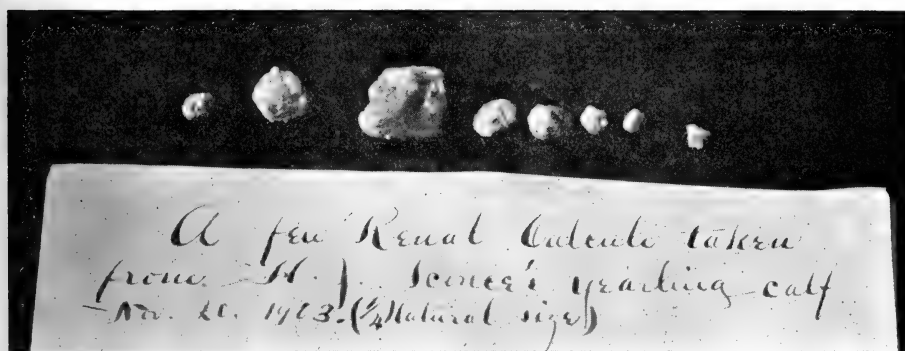 A few Renal Calculi taken
from H. J. Sconce's yearling calf
Nov. 20. 1913. (¼ Natural size)